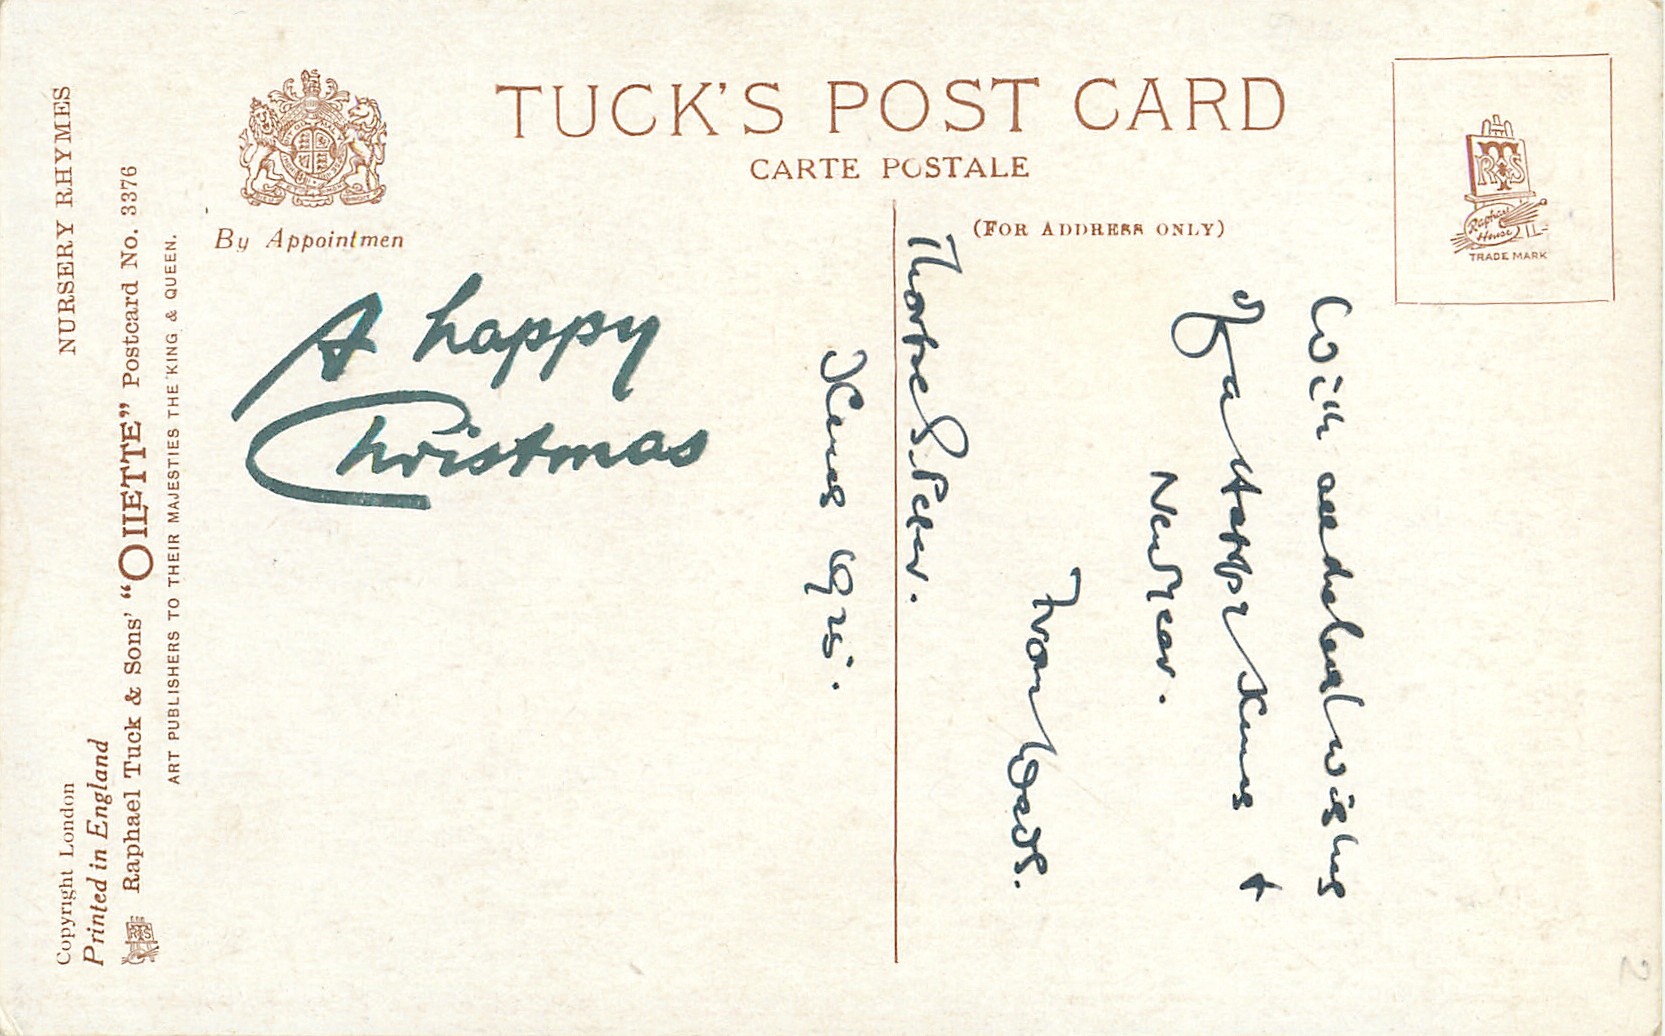 TUCK'S POST CARD
CARTE POSTALE
(FOR ADDRESS ONLY)
By Appointmen
NURSERY RHYMES
Copyright London
Printed in England
Raphael Tuck & Sons' "OILETTE" Postcard No. 3376
ART PUBLISHERS TO THEIR MAJESTIES THE KING & QUEEN.
RTS
Raphael House
TRADE MARK
A happy
Christmas
With all
wishes
a Happy Xmas +
New Year.
from
Peter.
Xmas 1925.
2